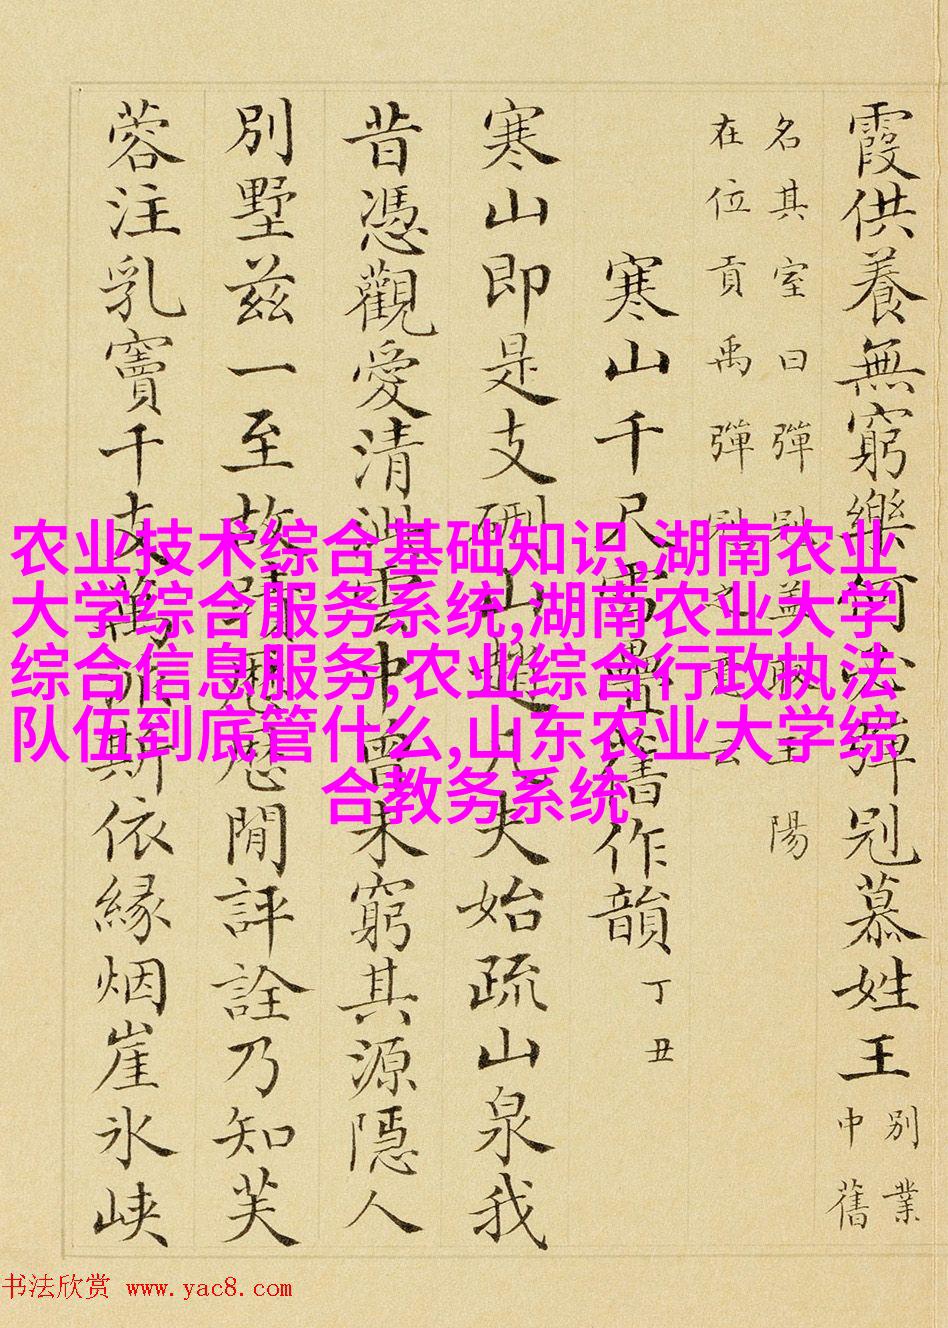 霞供養無窮樂何必彈冠慕姓王
別業
中舊
名其室曰彈冠盖取王陽
在位貢禹彈冠之意云
寒山千尺雪疊舊作韻 丁丑
寒山即是支硎山趙大夫始疏山泉我
昔憑觀愛清泚雲中曾未窮其源隱人
別墅兹一至故蹟感閒評詮乃知芙
蓉注乳竇千支萬派斯依緣烟崖氷峽
农业技术综合基础知识,湖南农业
大学综合服务系统,湖南农业大学
综合信息服务,农业综合行政执法
队伍到底管什么,山东农业大学综
合教务系统
书法欣赏 www.yac8.com